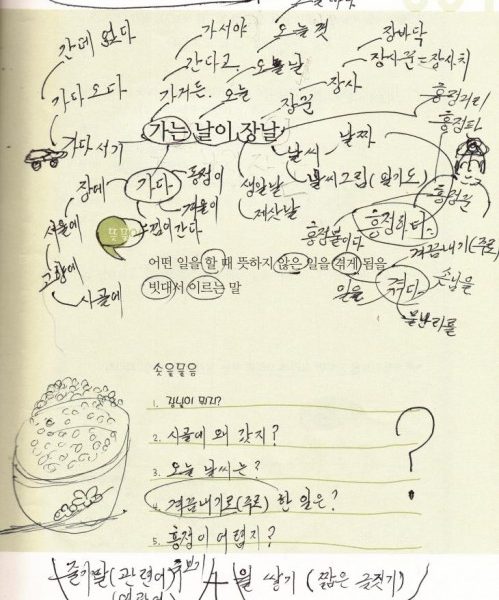 간데 없다
가서야
오늘껏
장바닥
간다고
오늘날
장사꾼=장사치
가다 오다
가거든.
오늘
장사
장꾼
흥정거리
흥정판
가다 서기
가는 날이 장날
날씨
날짜
장에
가다
동정이
생일날
날씨그림(일기도)
흥정꾼
겨울이
제삿날
서울에
뜻풀이
낌이 간다
흥정붙이다
흥정하다
겨끔내기(주로)
고향에
어떤 일을 할 때 뜻하지 않은 일을 겪게 됨을
일을
겪다
손님을
시골에
빗대서 이르는 말
물난리를
솟을물음
1. 장날이 뭐지?
2. 시골에 왜 갔지?
3. 오늘 날씨는?
4. 겨끔내기로(주로) 한 일은?
5. 흥정이 어렵지?
?
줄기말(관련어)
+ 월 쌓기 (짧은 글짓기)